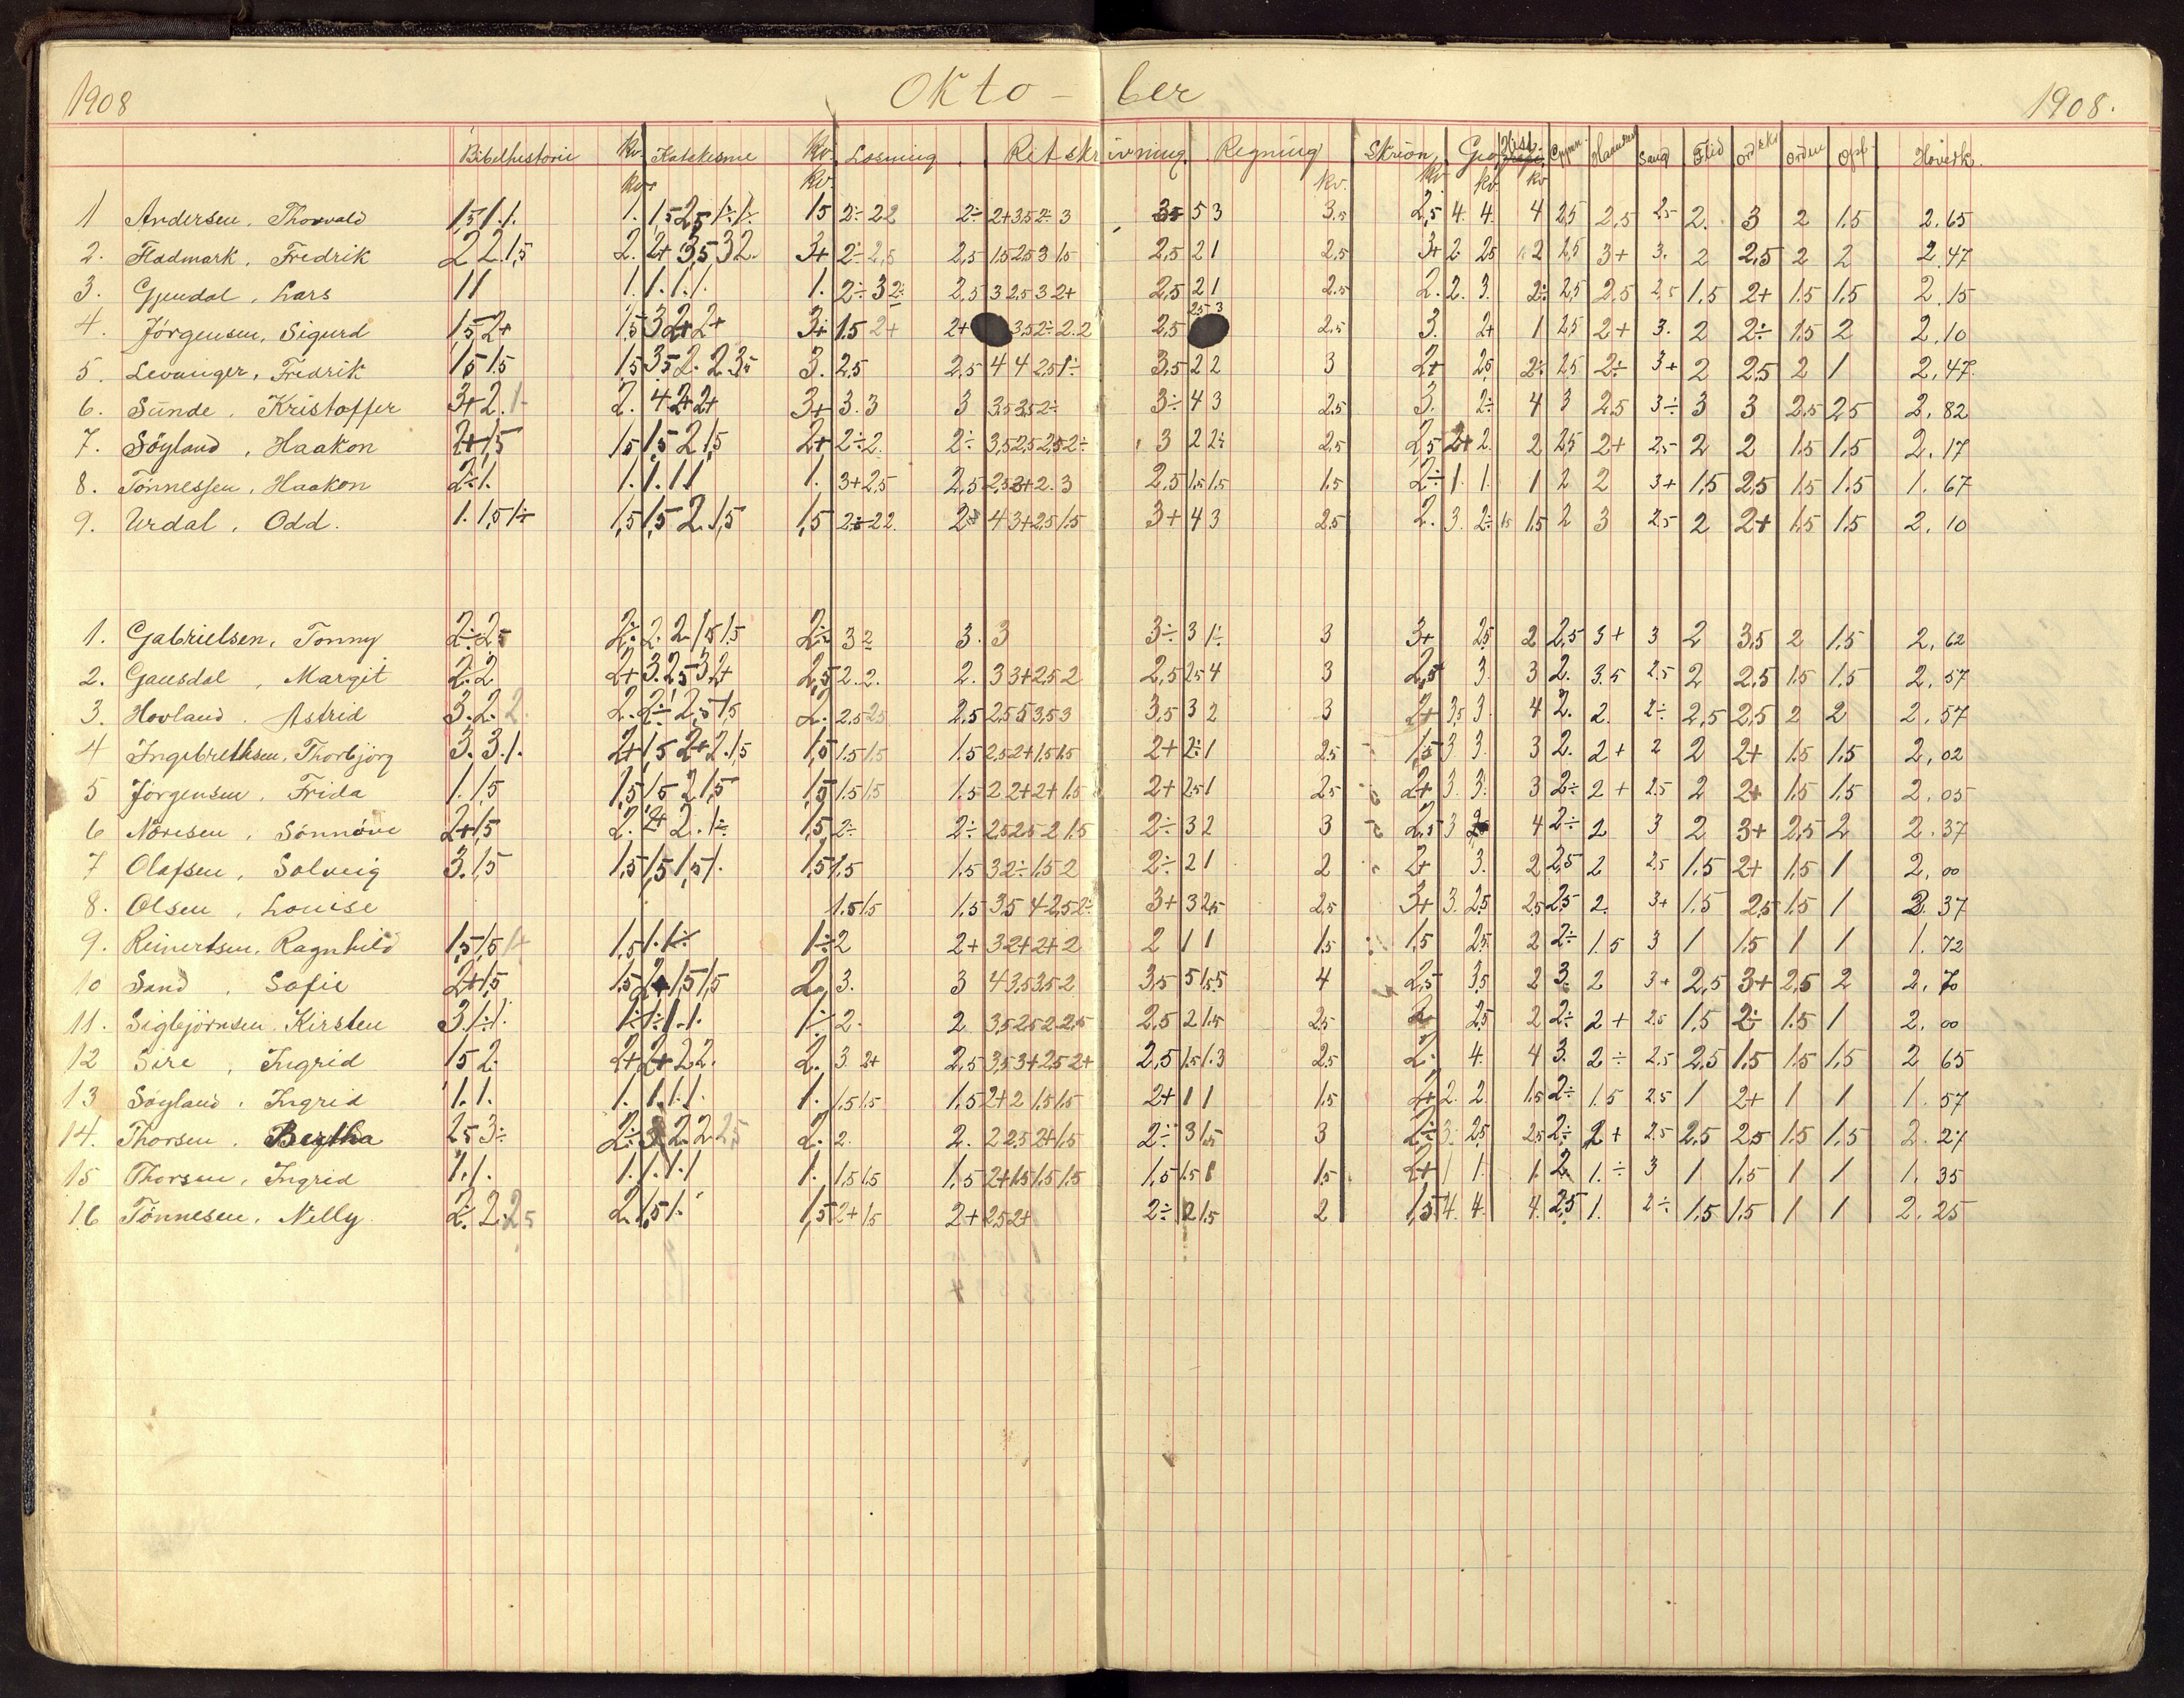 1908 Okto- ber 1908.
Bibelhistorie Kv. Katekesme Kv. Læsning Retskrivning Regning Skrivn. Geo Hist. Gymn. Haandar Sang Flid Ordsk Orden Opf. Hovedk.
Kv. Kv. Kv. Kv. Kv. Kv.
1 Andersen, Thorvald 1,5 1. 1. 1. 1,5 2,5 1÷ 1÷ 1,5 2÷ 2 2 2÷ 2+ 3,5 2÷ 3 3,5 5 3 3,5 2,5 4. 4. 4 2,5 2,5 2,5 2. 3 2 1,5 2.65
2. Fladmark, Fredrik 2 2. 1,5 2. 2+ 3,5 3 2. 3+ 2÷ 2,5 2,5 1,5 2,5 3 1,5 2,5 2 1 2,5 3+ 2 2,5 2 2,5 3+ 3. 2 2,5 2 2 2.47
3. Gjendal, Lars 1 1 1. 1. 1. 1. 1. 2÷ 3 2÷ 2,5 3 2,5 3 2+ 2,5 2 1 2,5 2. 2. 3. 2÷ 2,5 2,5 2,5 1,5 2+ 1,5 1,5 2.15
4. Jörgensen, Sigurd 1,5 2+ 1,5 3 2+ 2+ 3+ 1,5 2+ 2+ 3,5 2÷ 2.2 2,5 2,5 3 2,5 3. 2+ 1 2,5 2+ 3. 2 2÷ 1,5 2 2.10
5. Levanger, Fredrik 1,5 1,5 1,5 3,5 2. 2 3÷ 3. 2,5 2,5 4 4 2,5 1÷ 3,5 2 2 3 2+ 2,5 2÷ 2,5 2÷ 3+ 2 2,5 2 1 2.47.
6. Sunde, Kristoffer 3+ 2. 1 2. 4 2+ 2+ 3+ 3. 3 3 3,5 3,5 2÷ 3÷ 4 3 2,5 3. 2÷ 4 3 2,5 3÷ 3 3 2,5 2,5 2.82
7. Söyland, Haakon 2+ 1,5 1,5 1,5 2 1,5 2+ 2÷ 2. 2÷ 3,5 2,5 2,5 2÷ 3 2 2÷ 2,5 2,5 2+ 2. 2 2,5 2+ 2,5 2 2 1,5 1,5 2.17
8. Tönnessen, Haakon 2÷ 1. 1. 1. 1 1 1. 3+ 2,5 2,5 2,5 3+ 2. 3 2,5 1,5 1,5 1,5 2÷ 1 1. 1 2 2 3+ 1,5 2,5 1,5 1,5 1.67
9. Urdal, Odd. 1. 1,5 1÷ 1,5 1,5 2. 1,5 1,5 2÷ 2 2. 2÷ 4 3+ 2,5 1,5 3+ 4 3 2,5 2. 3. 2÷ 1,5 1,5 2 3 2,5 2 2+ 1,5 1,5 2.10
1. Gabrielsen, Tonny 2÷ 2,5 2÷ 2. 2 1,5 1,5 2÷ 3 2 3. 3 3÷ 3 1÷ 3 3+ 2,5 2 2,5 3+ 3 2 3,5 2 1,5 2.62
2. Gausdal, Margit 2. 2 2+ 3. 2,5 3 2+ 2,5 2. 2. 2. 3 3+ 2,5 2 2,5 2,5 4 3 2,5 3. 3 2. 3.5 2,5 2 2,5 1,5 1,5 2.57
3. Hovland, Astrid 3. 2. 2 2. 2÷ 2,5 1,5 2. 2,5 2,5 2,5 2,5 5 3,5 3 3,5 3 2 3 2+ 3,5 3. 4 2. 2. 2÷ 2,5 2,5 2 2 2.57
4 Ingebrethsen, Thorbjörg 3. 3. 1. 2+ 1,5 2+ 2. 1,5 1,5 1,5 1,5 1.5 2,5 2+ 1,5 1,5 2+ 2÷ 1 2,5 1,5 3 3. 3 2. 2+ 2 2 2+ 1,5 1,5 2.02
5 Jörgensen, Frida 1. 1,5 1,5 1,5 2 1,5 1,5 1.5 1,5 1.5 2 2+ 2+ 1,5 2+ 2,5 1 2,5 2+ 3. 3. 3 2÷ 2+ 2,5 2 2+ 1,5 1,5 2.05
6 Noresen, Sönnöve 2+ 1,5 2. 2+ 2. 1÷ 1,5 2÷ 2÷ 2,5 2,5 2 1,5 2÷ 3 2 3 2,5 3 4 2÷ 2 3 2 3+ 2,5 2 2.37
7 Olafsen, Solveig 3. 1,5 1,5 1,5 1,5 1. 1,5 1,5 1.5 3 2÷ 1,5 2 2÷ 2 1 2 2+ 3. 2 2,5 2 2,5 1,5 2+ 1,5 1 2.00
8. Olsen, Louise 1.5 1,5 1.5 3,5 4 2,5 2÷ 3+ 3 2,5 2,5 3+ 3. 2,5 2,5 2,5 2. 3+ 1,5 2,5 1,5 1 2.37
9. Reinertsen, Ragnhild 1,5 1,5 1,5 1. 1÷ 1÷ 2 2+ 3 2+ 2+ 2 2 1 1 1,5 1,5 2,5 2 2÷ 1.5 3 1 1,5 1 1 1.72
10 Sand, Sofie 2+ 1,5 1,5 2+ 1,5 1,5 2. 3. 3 4 3,5 3,5 2 3,5 5 1,5,5 4 2,5 3,5 2 3. 2 3+ 2,5 3+ 2,5 2 2.70
11. Sigbjörnsen, Kirsten 3. 1÷ 1. 1÷ 1÷ 1. 1. 1÷ 2. 2 3,5 2,5 2 2,5 2,5 2 1,5 2,5 2 2,5 2 2÷ 2+ 2,5 1,5 2÷ 1.5 1 2.00
12 Sire, Ingrid 1,5 2. 2+ 2+ 2 2. 2. 3. 2+ 2,5 3,5 3+ 2,5 2+ 2,5 1,5 1. 3 2,5 2. 4. 4 3. 2÷ 2,5 2,5 1,5 1,5 1,5 2 65
13 Söyland, Ingrid 1. 1. 1. 1. 1. 1. 1. 1,5 1,5 1,5 2+ 2 1,5 1,5 2+ 1 1 1,5 2+ 2. 2. 1,5 2÷ 1.5 2,5 1 2+ 1 1 1.57
14. Thorsen, Bertha 2,5 3÷ 2÷ 3 2 2. 2,5 2. 2. 2. 2 2,5 2+ 1,5 2÷ 3 1,5 3 2÷ 3. 2,5 2,5 2÷ 2+ 2,5 2,5 2,5 1,5 1,5 2.27
15 Thorsen, Ingrid 1. 1. 1. 1. 1. 1 1. 1,5 1,5 1,5 2+ 1,5 1,5 1,5 1,5 1,5 1 1,5 2+ 1 1. 1. 2 1.÷ 3 1 1,5 1 1 1.35
16 Tönnesen, Nelly 2. 2. 2,5 2. 1,5 1. 1,5 2+ 1,5 2+ 2,5 2+ 2÷ 2 1,5 2 1,5 4. 4. 4. 2,5 1. 2÷ 1,5 1,5 1 1 2.25